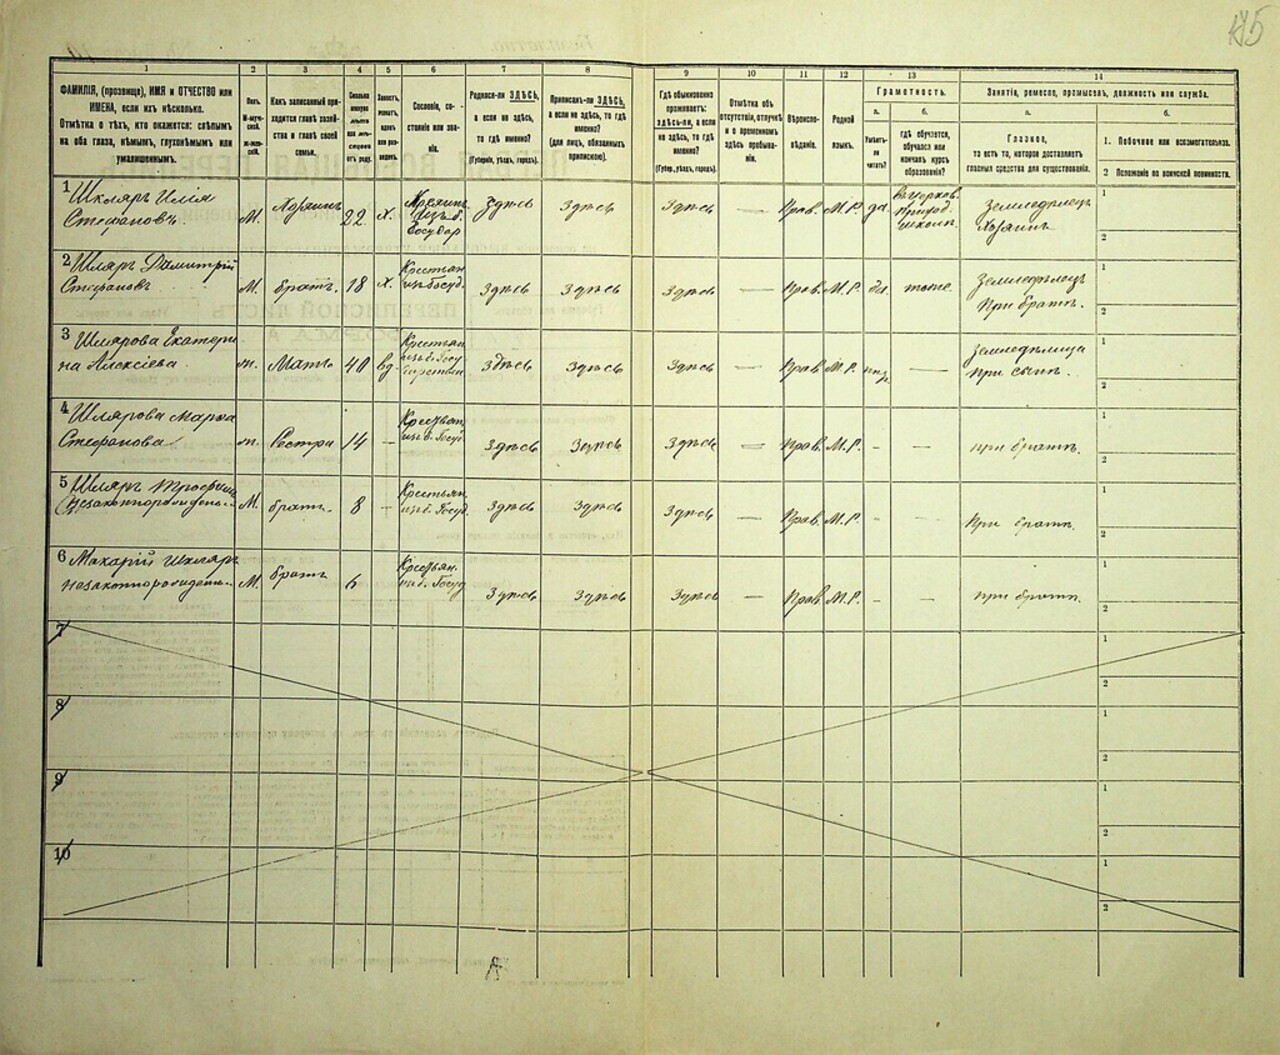 45
1 2 3 4 5 6 7 8 9 10 11 12 13 14
ФАМИЛІЯ, (прозвище), ИМЯ и ОТЧЕСТВО или
ИМЕНА, если ихъ нѣсколько.
Отмѣтка о тѣхъ, кто окажется: слѣпымъ
на оба глаза, нѣмымъ, глухонѣмымъ или
умалишеннымъ.
Полъ.
М-мужской.
Ж-женскій.
Какъ записанный при-
ходится главѣ хозяй-
ства и главѣ своей
семьи.
Сколько
минуло
лѣтъ
или мѣ-
сяцевъ
отъ роду.
Холостъ,
женатъ,
вдовъ
или раз-
веденъ.
Сословіе, со-
стояніе или зва-
ніе.
Родился-ли ЗДѢСЬ,
а если не здѣсь,
то гдѣ именно?
(Губернія, уѣздъ, городъ).
Приписанъ-ли ЗДѢСЬ,
а если не здѣсь, то гдѣ
именно?
(для лицъ, обязанныхъ
припискою).
Гдѣ обыкновенно
проживаетъ:
здѣсь-ли, а если
не здѣсь, то гдѣ
именно?
(Губер., уѣздъ, городъ).
Отмѣтка объ
отсутствіи, отлучкѣ
и о временномъ
здѣсь пребыва-
ніи.
Вѣроиспо-
вѣданіе.
Родной
языкъ.
Грамотность.
а.
Умѣетъ-
ли
читать?
б.
гдѣ обучается,
обучался или
кончилъ курсъ
образованія?
Занятіе, ремесло, промыселъ, должность или служба.
а.
Главное,
то есть то, которое доставляетъ
главныя средства для существованія.
б.
1. Побочное или вспомогательное.
2 Положеніе по воинской повинности.
1 Шкляръ Илія
Стефановъ.
М.
Хозяинъ
22
х.
Крестьянинъ
изъ б.
Государ
Здѣсь
Здѣсь
Здѣсь
—
Прав.
М.Р.
да.
въ церков.
приход.
школѣ.
Земледѣлецъ
Хозяинъ
1
2
2 Шляръ Димитрій
Стефановъ
М.
братъ.
18
х.
Крестьян
изъ б. Госуд.
Здѣсь
Здѣсь
Здѣсь
—
Прав.
М.Р.
да.
тоже.
Земледѣлецъ
При братѣ.
1
2
3 Шлярова Екатери
на Алексіева.
ж.
Мать
40
вд.
Крестьян
изъ б. Госу
дарствен
Здѣсь
Здѣсь
Здѣсь
—
Прав
М.Р.
—
Земледѣлица
При сынѣ.
1
2
4 Шлярова Марва
Стефанова
ж.
Сестра
14
—
Крестьян
изъ б. Госуд
Здѣсь
Здѣсь
Здѣсь
—
Прав.
М.Р.
-
—
при братѣ.
1
2
5 Шляръ Трофимъ
(Незаконнорожден..
М.
братъ.
8
—
Крестьян.
изъ б. Госуд.
Здѣсь
Здѣсь
Здѣсь
—
Прав.
М.Р.
-
-
При братѣ.
1
2
6 Макарій Шкляръ
незаконнорожден..
М.
братъ
6
Крестьян.
изъ б. Госуд
Здѣсь
Здѣсь
Здѣсь
—
Прав.
М.Р.
-
—
при братѣ.
1
2
7
1
2
8
1
2
9
1
2
10
1
2